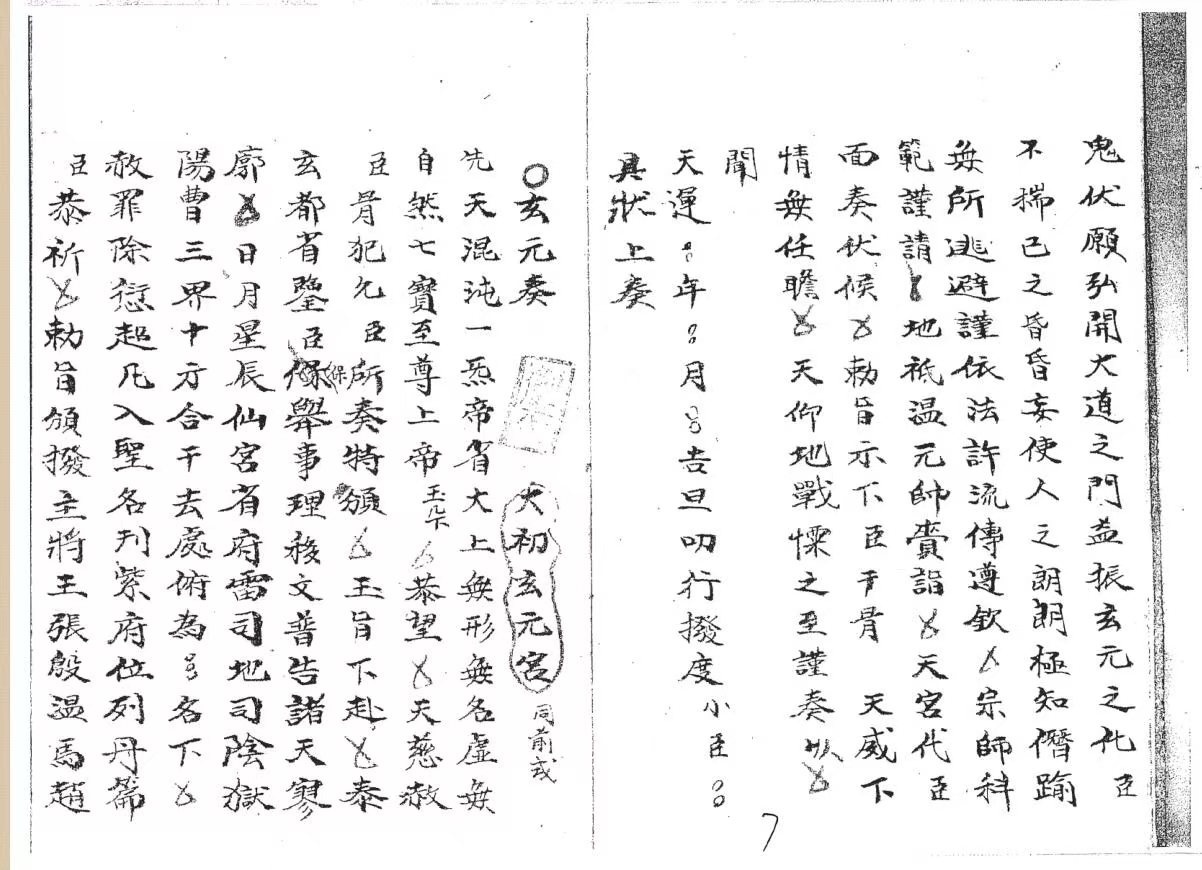 鬼伏願弘開大道之門益振玄元之化臣
不揣己之昏昏妄使人之朗朗極知僭踰
無所逃避謹依法許流傳遵欽宗師科
範謹請地祇温元帥賫詣天宮代臣
面奏伏候勅旨示下臣干冒天威下
情無任瞻天仰地戰慄之至謹奏以
聞
天運年月吉旦叨行撥度小臣
具狀上奏
7
○玄元奏 大初玄元宮 同前或
先天混沌一炁帝省大上無形無名虛無
自然七寶至尊上帝玉陛下恭望天慈赦
臣冒犯允臣所奏特頒玉旨下赴泰
玄都省鑒臣保舉事理移文普告諸天寥
廓日月星辰仙宮省府雷司地司陰獄
陽曹三界十方合干去處俯為名下
赦罪除愆超凡入聖名刊紫府位列丹篇
臣恭祈勅旨頒撥主將王張殷温馬趙